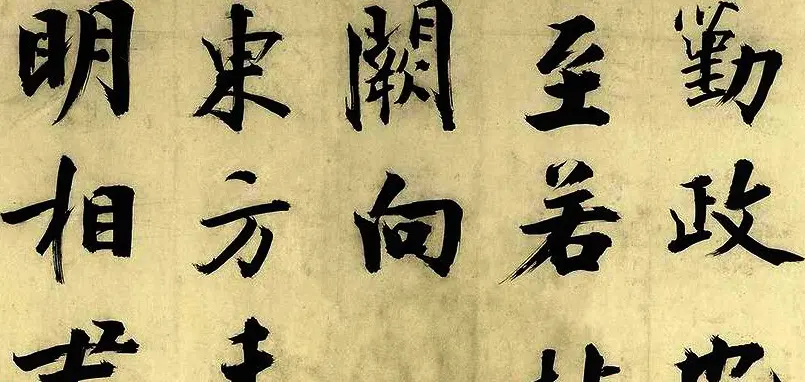 勤政
至若
闕向
東方
明相